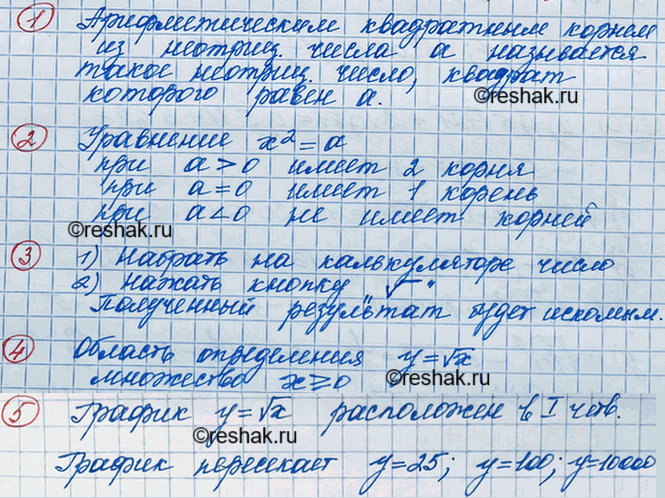 1 Арифметическим квадратным корнем
из неотриц. числа a называется
такое неотриц. число, квадрат
которого равен a.
©reshak.ru
2 Уравнение x² = a
при a > 0 имеет 2 корня
при a = 0 имеет 1 корень
при a < 0 не имеет корней
©reshak.ru
3 1) Набрать на калькуляторе число
2) Нажать кнопку "√"
Полученный результат будет искомым.
4 Область определения y = √x
множество x ⩾ 0
©reshak.ru
5 График y = √x расположен в I четв.
©reshak.ru
График пересекает y = 25; y = 100; y = 10000